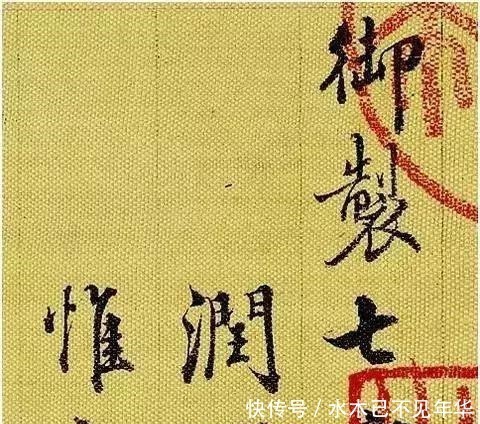 御製七
潤
惟
快传号/水木已不见年华